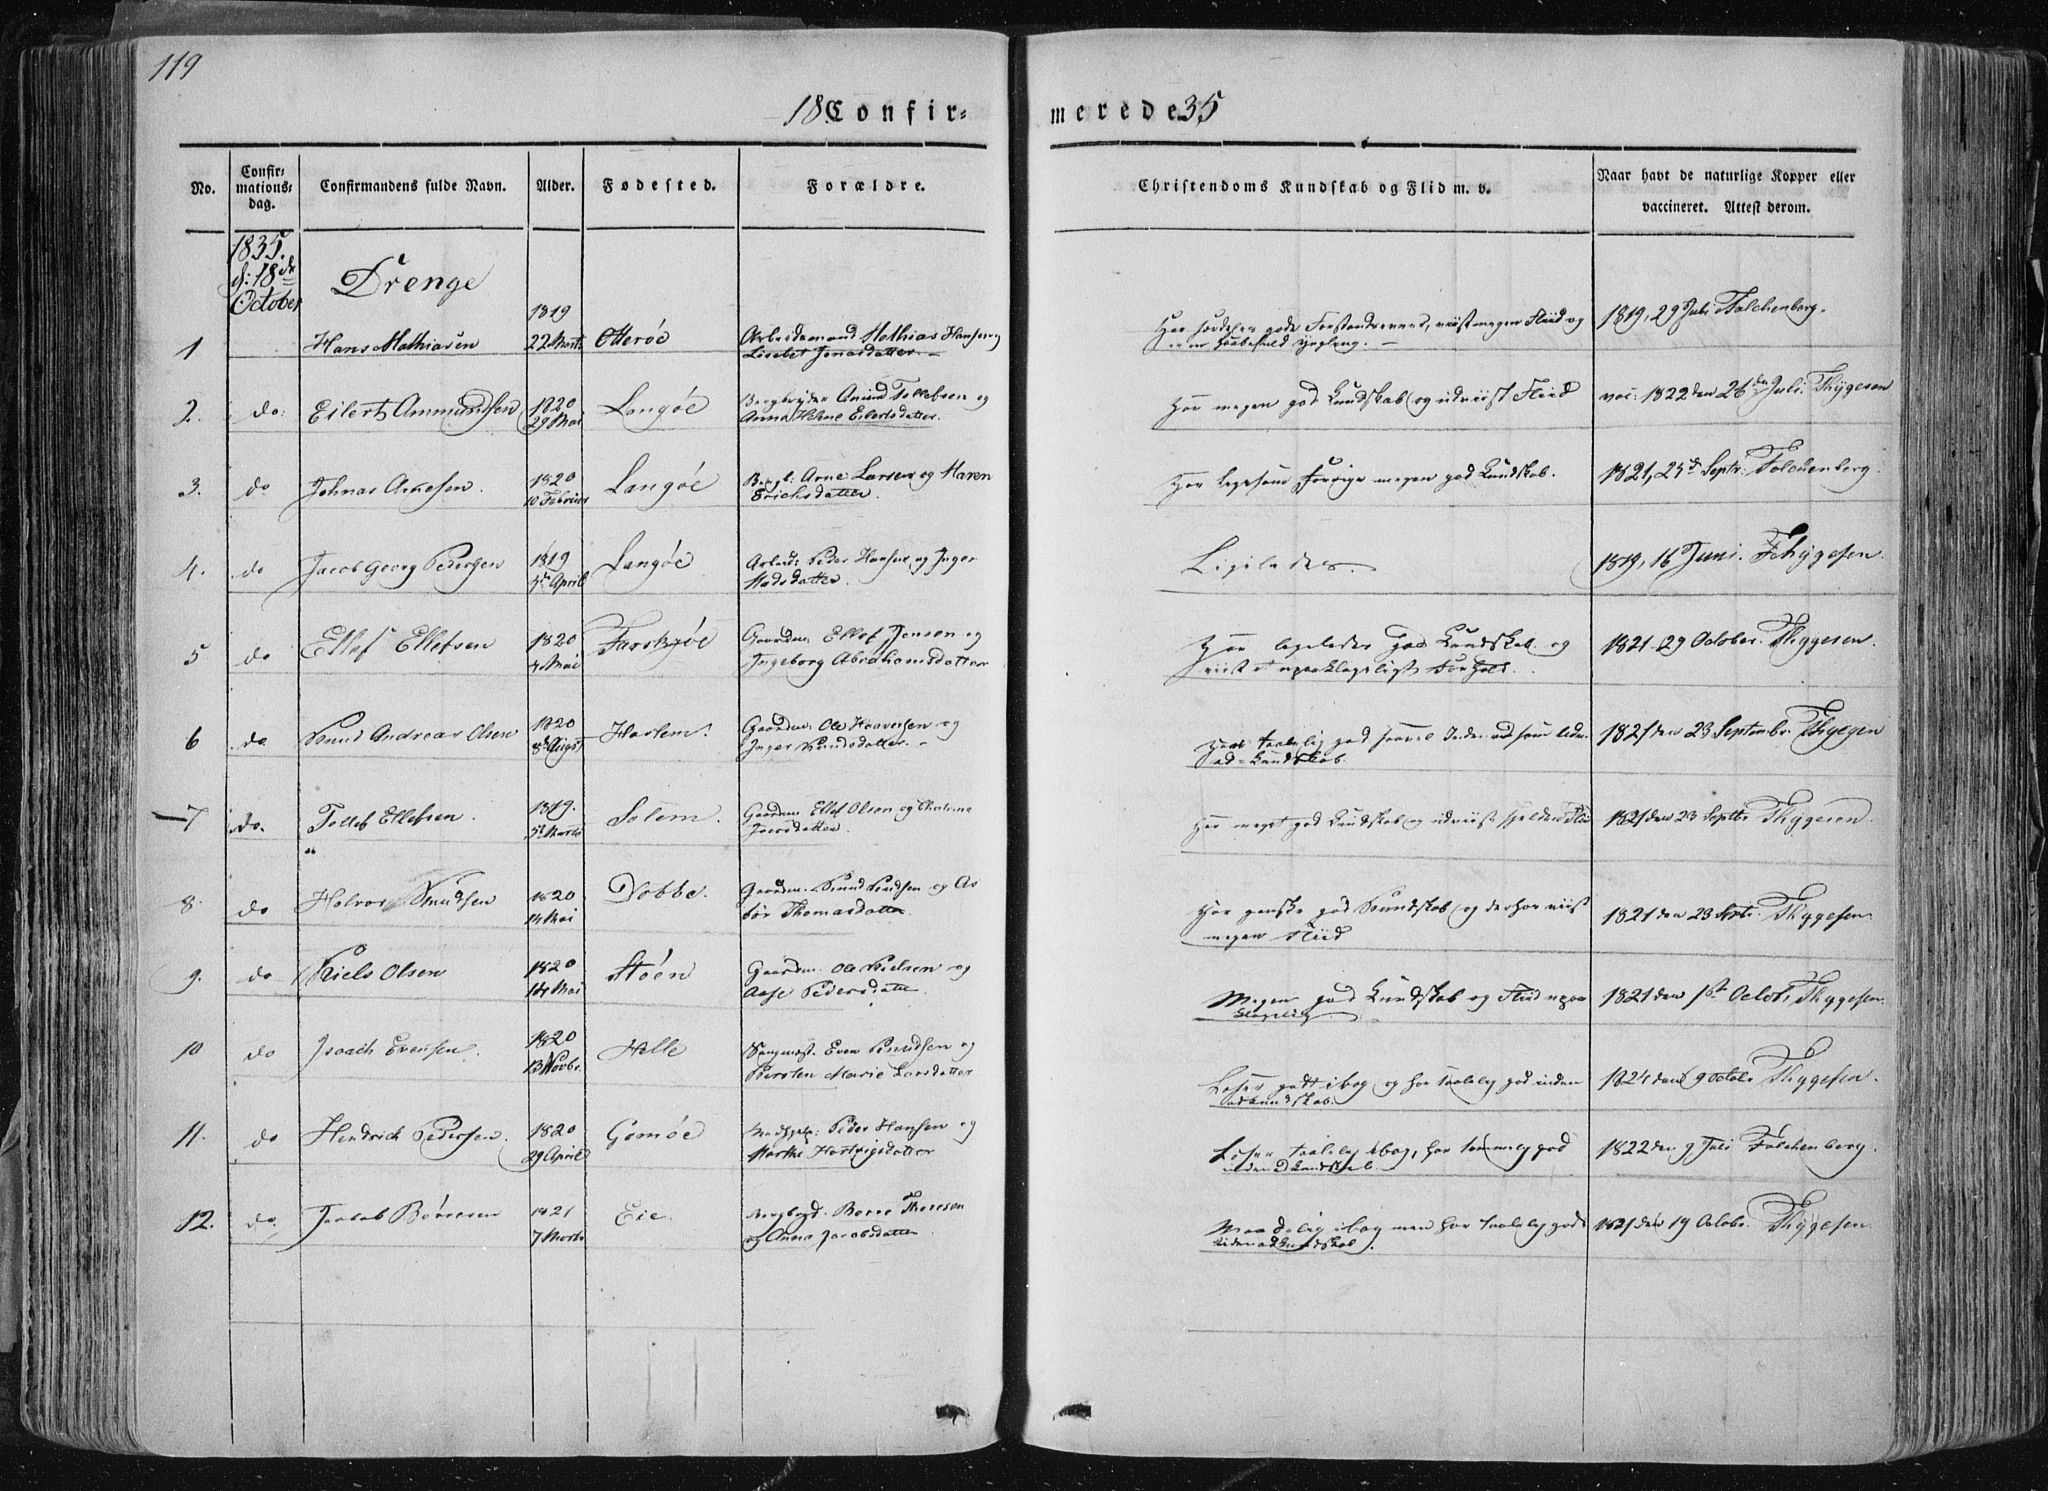 119
18 Confir= merede 35
No. Confir- mations- dag. Confirmandens fulde Navn. Alder. Fødested. Forældre. Christendoms Kundskab og Flid m. v. Naar havt de naturlige Kopper eller vaccineret. Attest derom.
1835. d: 18de October
Drenge
1 Hans Mathiasen 1819 22 Marts Otterøe Arbeidsmand Mathias Hansen og
Lisebet Jonasdatter 1819, 29 Juli Falchenberg.
2. do: Eilert Ammundsen 1820 29 Mai Langøe Bergbryder Amund Tollefsen og
Anna Helene Eilertsdatter. Har megen god Kundskab og udviist Fliid vac: 1822 den 26de Juli. Thygesen
3. do Johnas Arnesen. 1820 10 Februar Langøe Bergb: Arne Larsen og Maren
Erichsdatter. Har ligesom Forrige megen god Kundskab. 1821, 25de Septr. Falchenberg.
4. do Jacob Georg Pedersen 1819 5te April Langøe Arbeid: Peder Hansen og Inger
Madsdatter. Ligeledes. 1819, 16 Juni. Thygesen.
5 do Ellef Ellefsen 1820 4 Mai Farskjøe Gaardm: Ellef Jensen og
Ingeborg Abrahamsdatter Har ligeledes god Kundskab og
viist et upaaklageligt Forhold. 1821 29 October. Thygesen.
6 do Knud Andreas Olsen 1820 8de Augst Haslem. Gaardm: Ole Haaversen og
Inger Knudsdatter. 1821 den 23 Septembr. Thygesen
7 do. Tollef Ellefsen. 1819. 5te Marts Solem. Gaardm: Ellef Olsen og
datter. Har meget god Kundskab og udviist sjelden Fliid 1821 den 23 Septbr Thygesen.
8. do Halvor Knudsen 1820 14 Mai Dobbe. Gaardm. Knud Knudsen og As
bør Thomasdatter Har ganske god Kundskab og derhos viist
megen Fliid 1821 den 23 Septr. Thygesen.
9. do Niels Olsen 1820 14 Mai Støen Gaardm: Ole Nielsen og
Aase Pedersdatter Megen god Kundskab og Fliid upaa
klagelig. 1821 den 1st Octobr. Thygesen.
10 do Isach Evensen. 1820 13 Novbr. Helle Even Knudsen og
Kirsten Marie Larsdatter Læser godt i bog og har taalelig god inden
ad kundskab. 1824 den 9 Octobr. Thygesen.
11. do Hendrich Pedersen. 1820 29 April Gomøe Peder Hansen og
Marthe Hartvigsdatter Læser taalelig i bog, har temmelig god
indenad Kundskab. 1822 den 9 Juli Falchenberg.
12. do. Jacob Børresen 1821 7 Marts Eie. Bergbryd. Børre Thoresen
og Anna Jacobsdatter Maadelig i bog men har taalelig god
udenad Kundskab. 1821 den 19 Octobr. Thygesen.